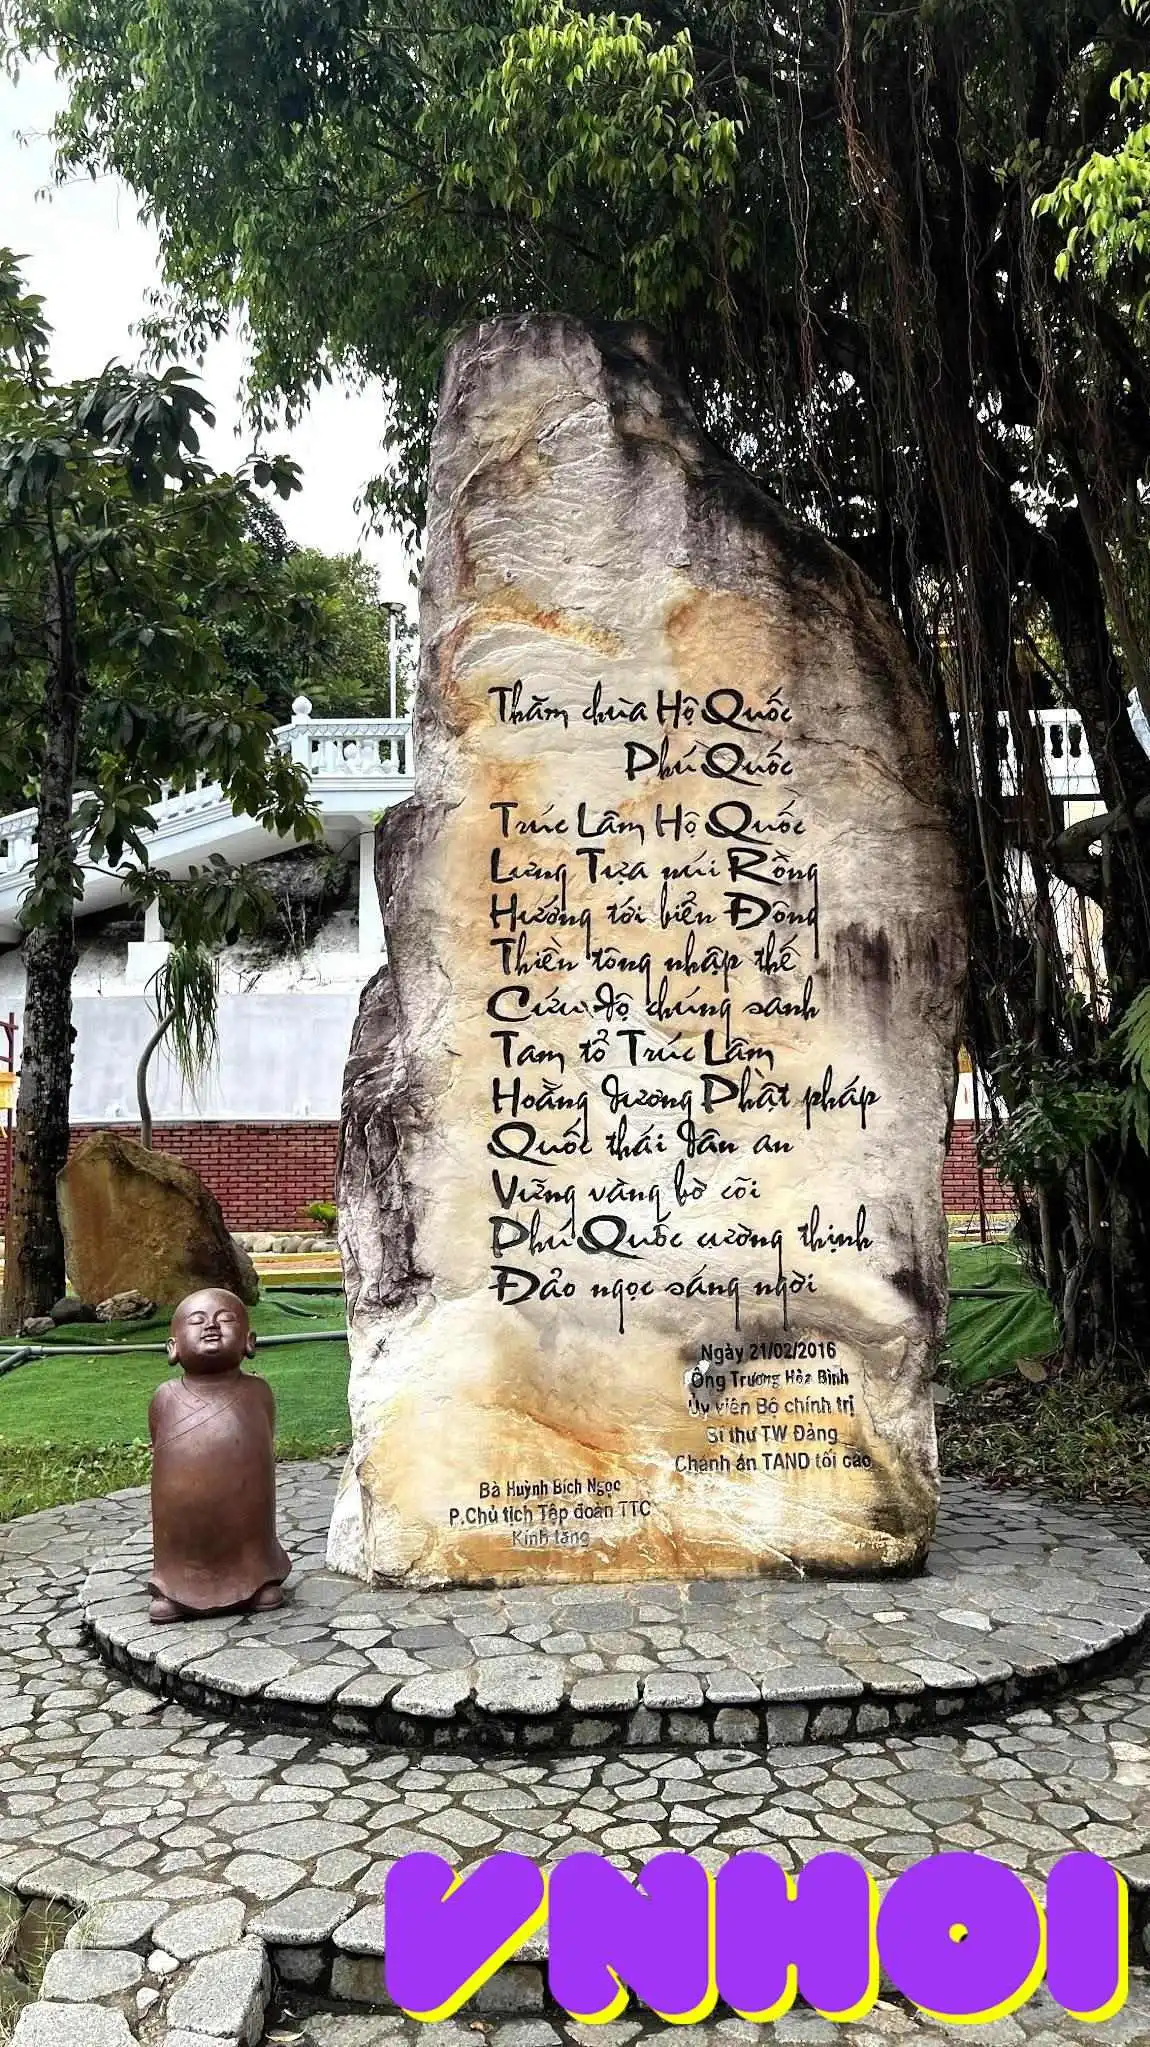 Thăm chùa Hộ Quốc
Phú Quốc
Trúc Lâm Hộ Quốc
Lưng Tựa núi Rồng
Hướng tới biển Đông
Thiền tông nhập thế
Cứu độ chúng sanh
Tam tổ Trúc Lâm
Hoằng dương Phật pháp
Quốc thái dân an
Vững vàng bờ cõi
Phú Quốc cường thịnh
Đảo ngọc sáng ngời
Ngày 21/02/2016
Ông Trương Hòa Bình
Ủy viên Bộ chính trị
Bí thư TW Đảng
Chánh án TAND tối cao
Bà Huỳnh Bích Ngọc
P.Chủ tịch Tập đoàn TTC
Kính tặng
VNHOI